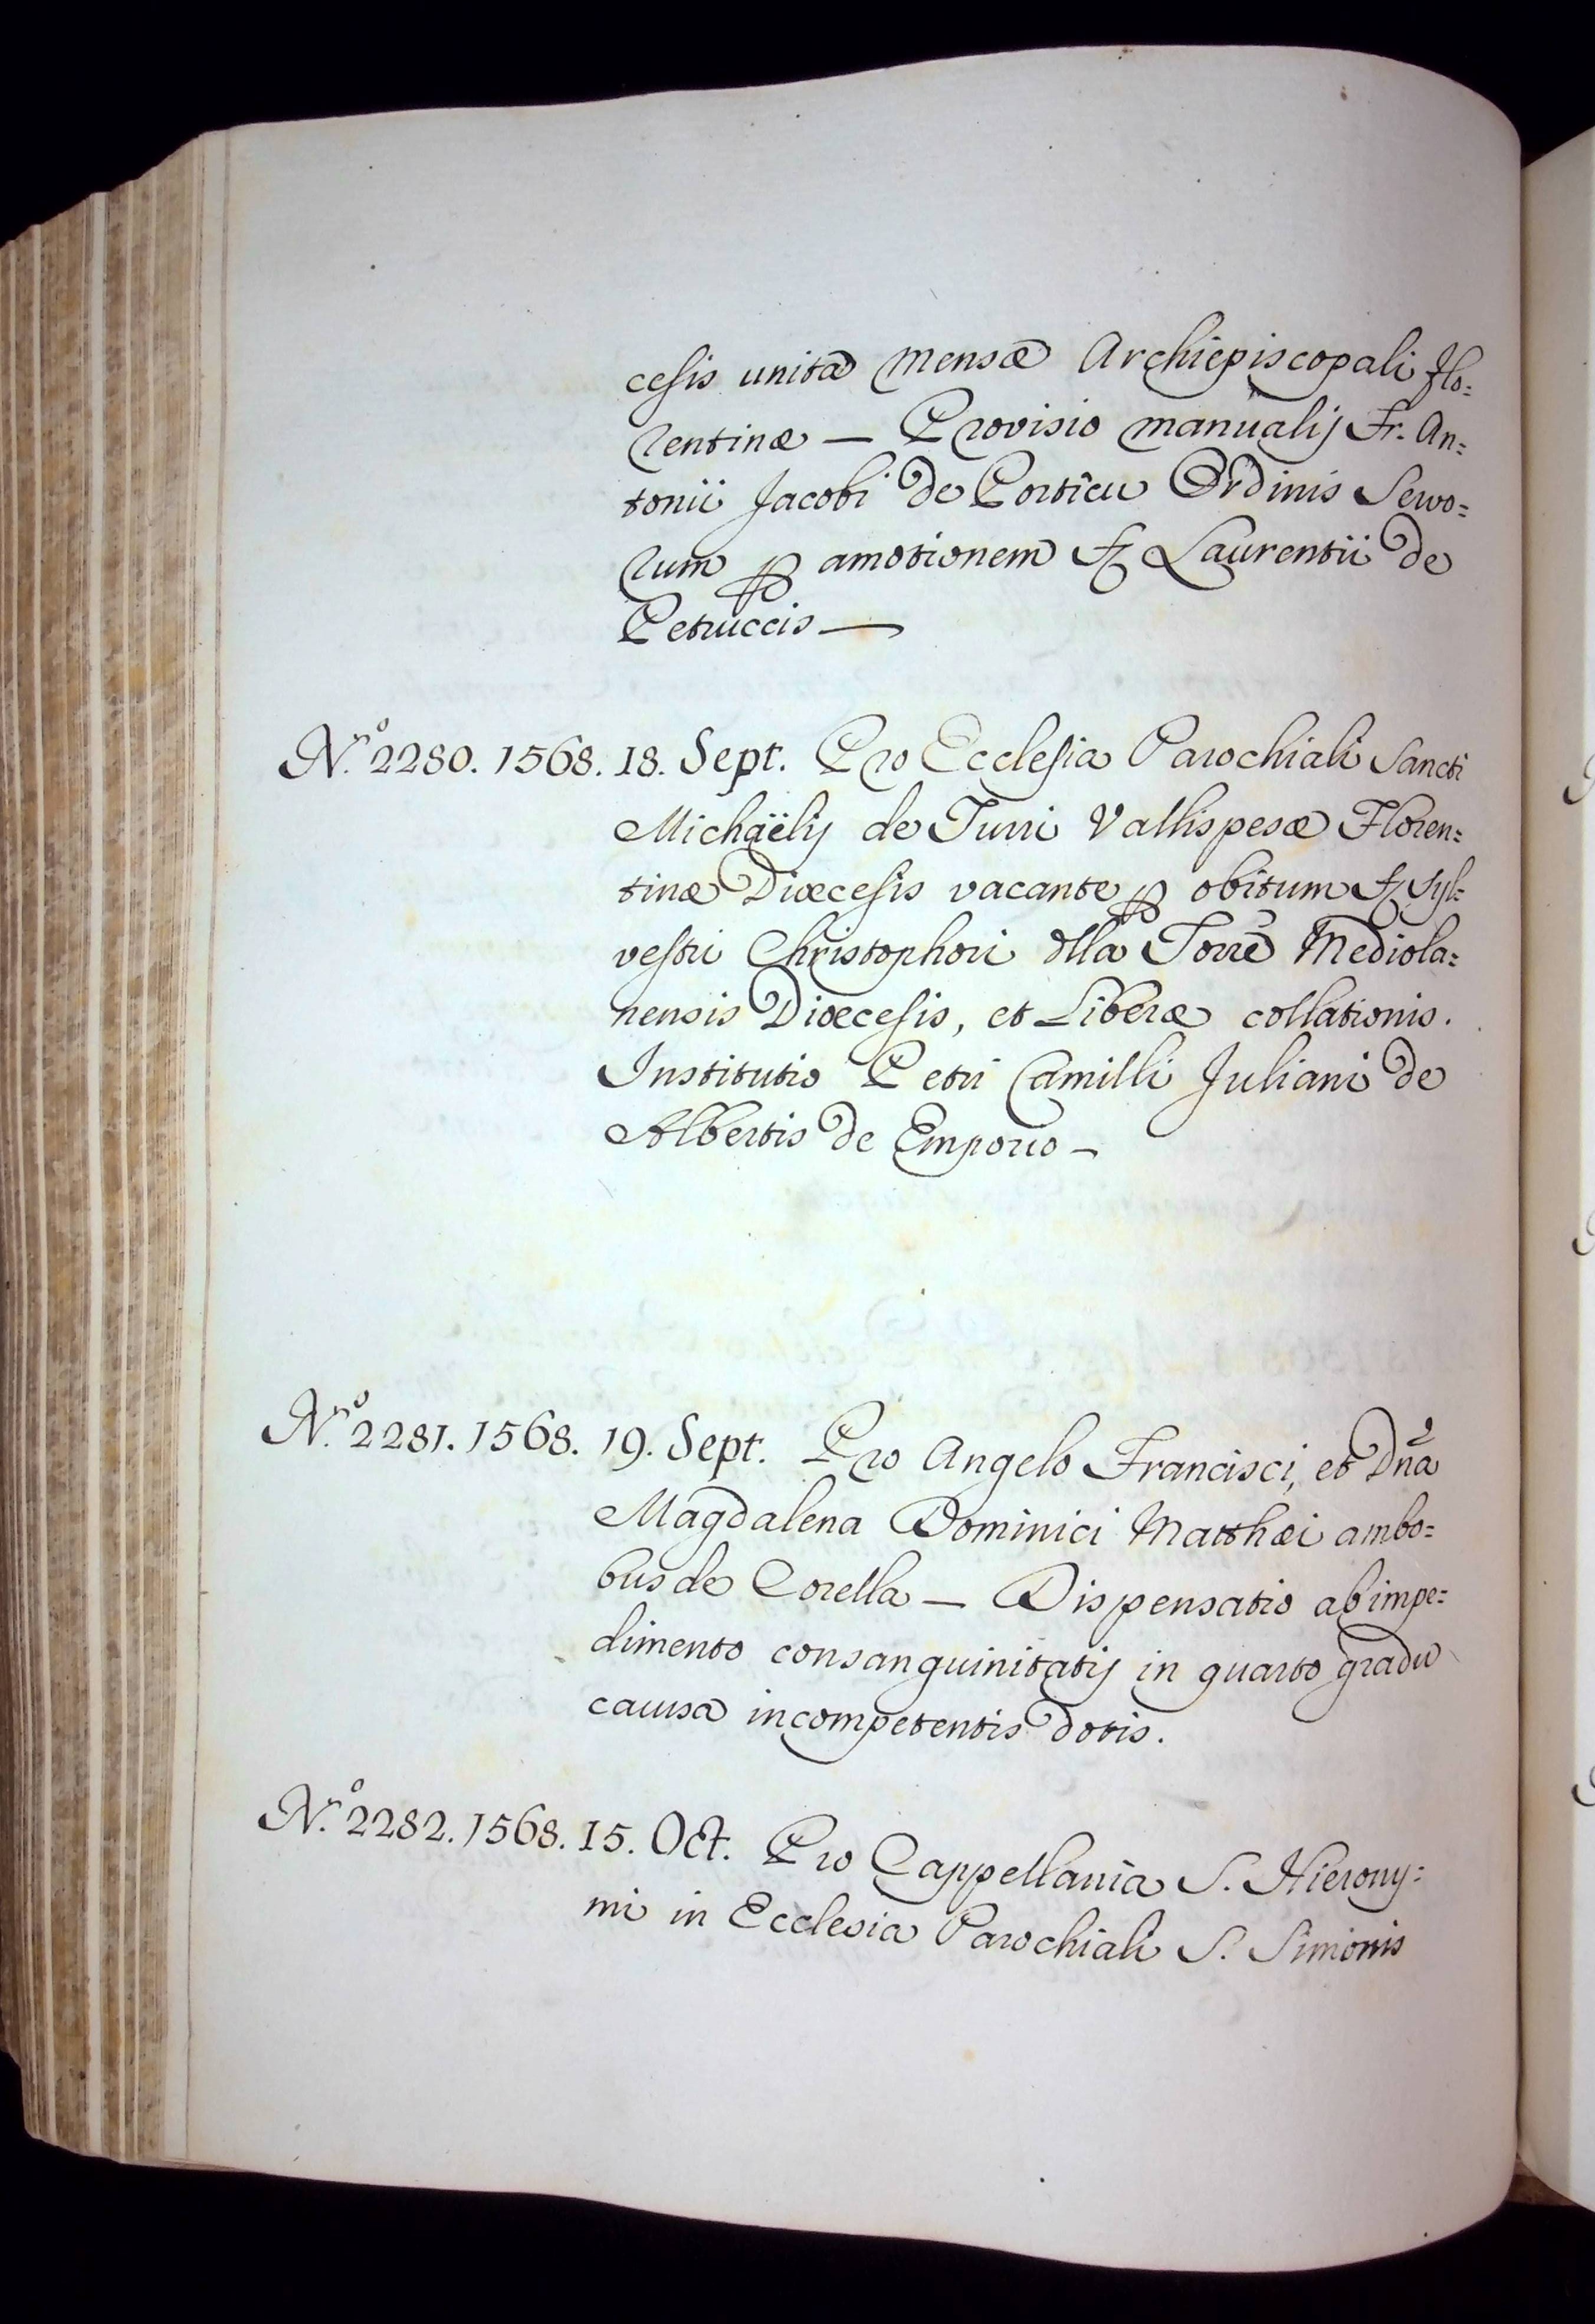 cesis unita Mensæ Archiepiscopali Flo=
rentinæ — Provisio manualis Fr. An=
tonii Jacobi de Porticu Ordinis Servo=
rum p amotionem Fr Laurentii de
Petruccis —
N.º 2280. 1568. 18. Sept. Pro Ecclesia Parochiali Sancti
Michaëlis de Turri Vallispesæ Floren=
tinæ Diœcesis vacante p obitum Fr Syl=
vestri Christophori dlla Torre Mediola=
nensis Diœcesis, et Liberæ collationis.
Institutio Petri Camilli Juliani de
Albertis de Emporio —
N.º 2281. 1568. 19. Sept. Pro Angelo Francisci, et Dña
Magdalena Dominici Matthæi ambo=
bus de Corella — Dispensatio ab impe=
dimento consanguinitatis in quarto gradu
causa incompetentis dotis.
N.º 2282. 1568. 15. Oct. Pro Cappellania S. Hierony=
mi in Ecclesia Parochiali S. Simonis